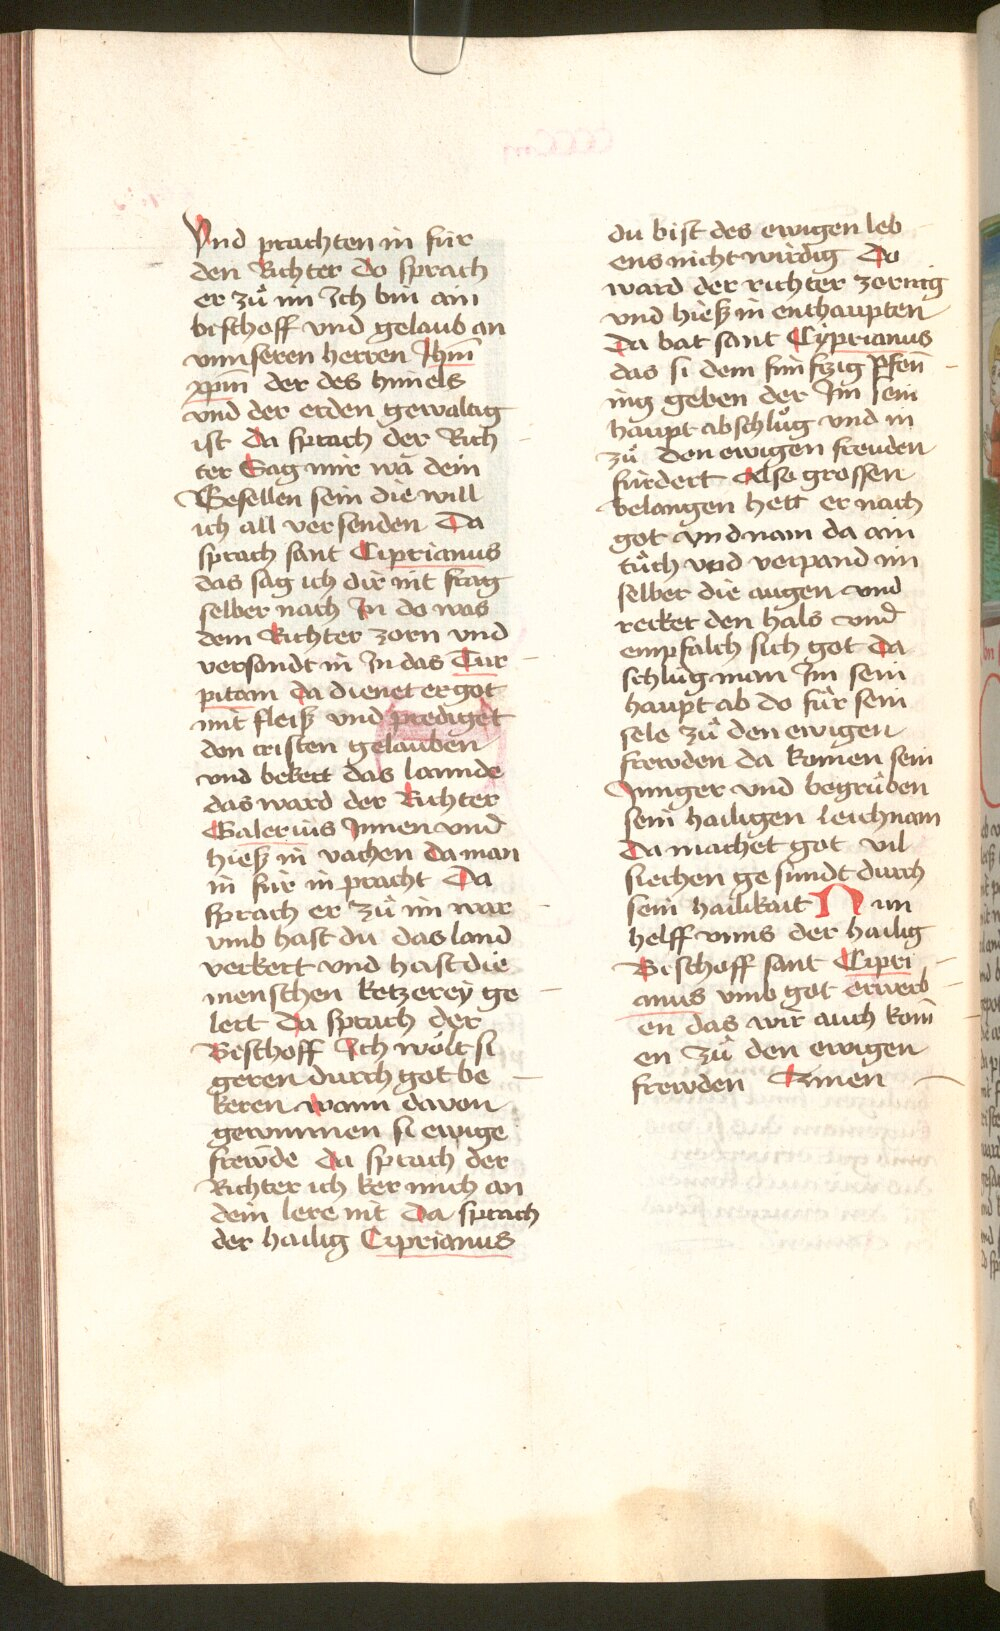 Vnd prachten in für
den Richter do sprach
er zů im Ich bin ain
bischoff vnd gelaub an
vnnseren herren Jhm̄
xpm̄ der des himels
vnd der erden gewaltig
ist da sprach der Rich
ter Sag mir wa dein
Gesellen sein die will
ich all versenden Da
sprach sant Ciprianus
das sag ich dir nit frag
selber nach In do was
dem Richter zorn vnd
versandt in In das Cur
pitam da dienet er got
mit fleiß vnd prediget
don cristen gelauben
vnd bekert das lannde
das ward der Richter
Galerius Innen vnd
hieß in vachen da man
in für in pracht Da
sprach er zů im war
vmb hast du das land
verkert vnd hast die
menschen ketzerey ge
lert Da sprach der
Bischoff Ich wolt si
geren durch got be
keren wann davon
gewinnen si ewige
frewde Da sprach der
Richter ich ker mich an
dein lere nit Da sprach
der hailig Ciprianus
du bist des ewigen leb
ens nicht wirdig Do
ward der richter zornig
vnd hieß in enthaupten
Da bat sant Cyprianus
das si dem fünfzig Pfen̄
ing geben der Im sein
haupt abschlůg vnd in
zů den ewigen freuden
fürdert Also grossen
belangen hett er nach
got vnd nam da ain
tůch vnd verpand im
selber die augen vnd
recket den hals vnd
empfalch sich got da
schlůg man Im sein
haupt ab do für sein
sele zů den ewigen
frewden da komen sein
Junger vnd begrůben
sein hailigen leichnam
Da machet got vil
siechen gesundt durch
sein hailikait Nun
helff vnns der hailig
Bischoff sant Cipri
anus vmb got erwerb
en das wir auch kom̄
en zů den ewigen
frewden Amen